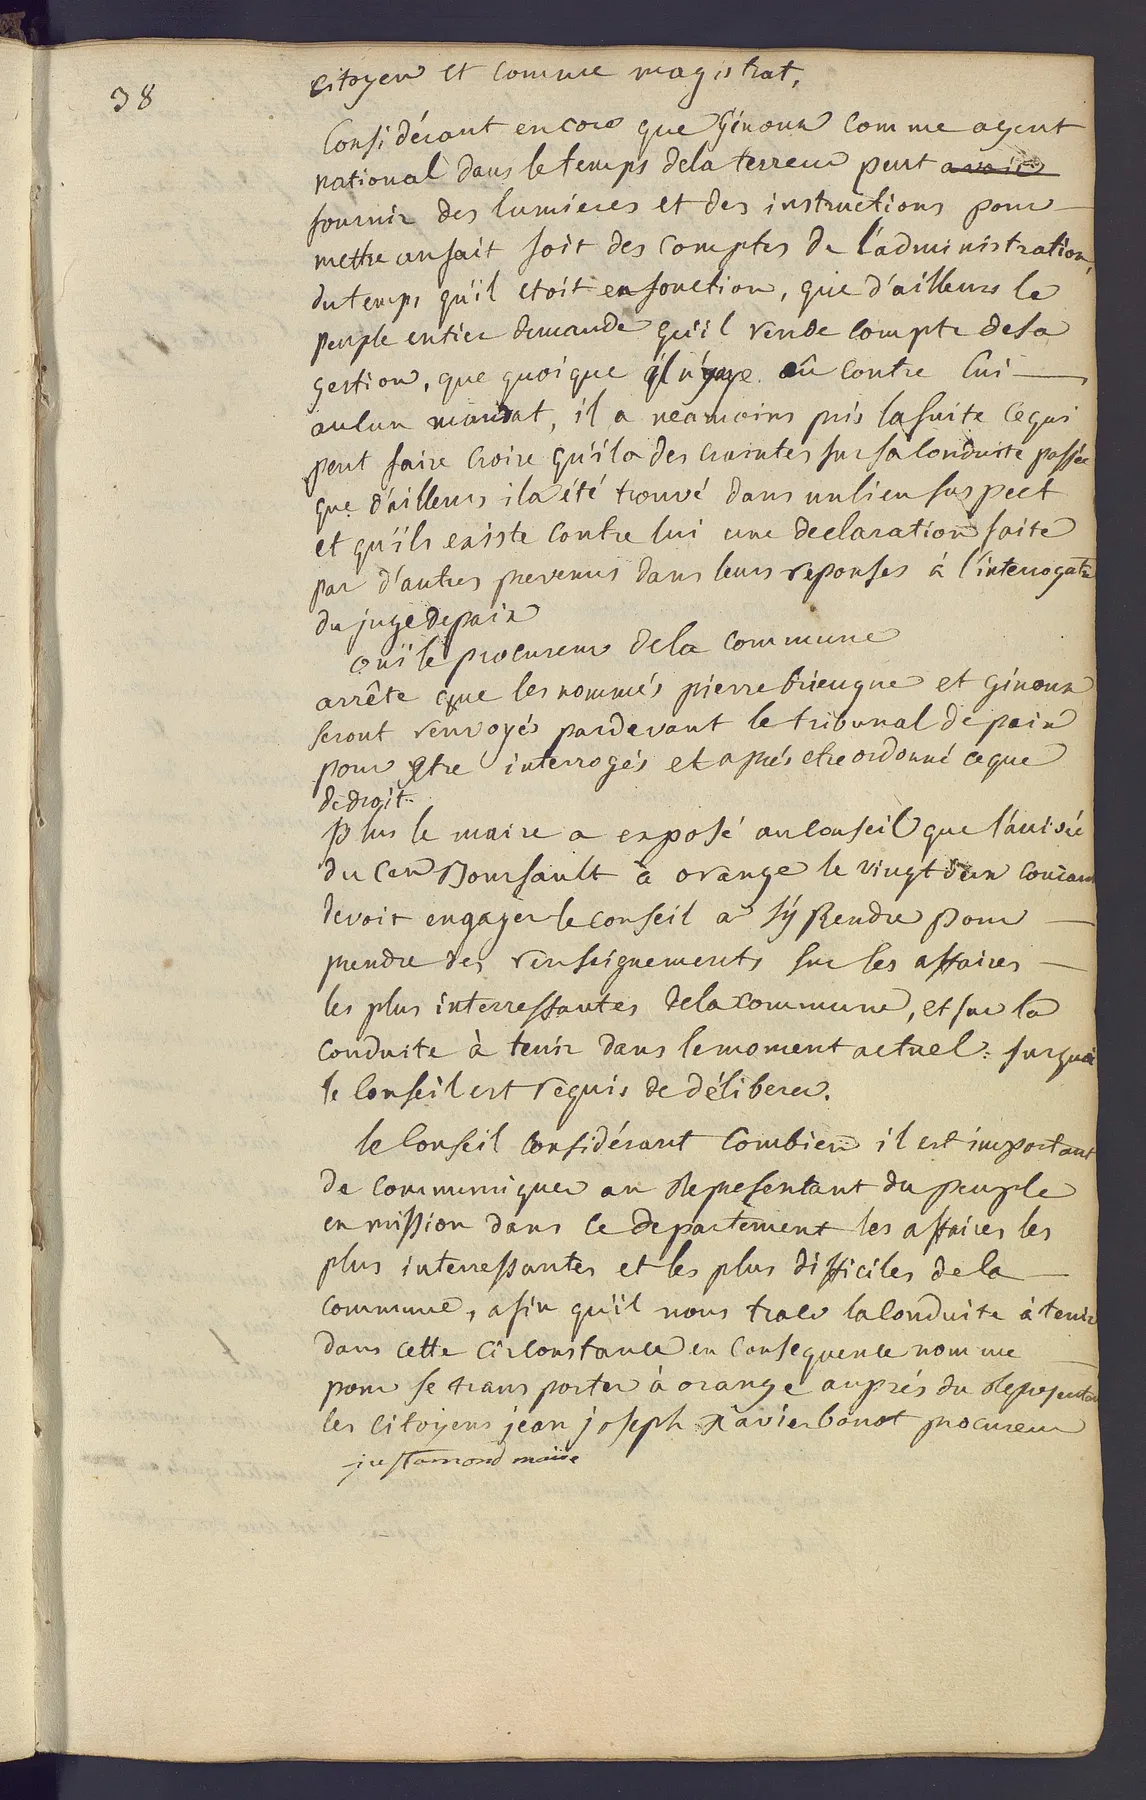 38
citoyen et comme magistrat,
Considérant encore que Ginoux comme agent
national dans le temps dela terreur peut avoir
fournir des lumieres et des instructions pour
mettre aufait soit des comptes de l'administration,
du temps qu'il etoit enfonction, que d'ailleurs le
peuple entier demande qu'il rende compte desa
gestion, que quoique il n'y aye eû contre lui
aucun mandat, il a neamoins pris lafuite cequi
peut faire croire qu'ila des craintes sur sa conduite passée
que d'ailleurs ila été trouvé dans unlieu suspect
et qu'ils existe contre lui une declaration faite
par d'autres prevenus dans leurs reponses à l'interrogatre
du juge depaix
ouï le procureur dela commune
arrête que les nommés pierre brieugne et Ginoux
seront renvoyés pardevant le tribunal de paix
pour être interrogés et aprés etre ordonné ceque
de droit.
Plus le maire a exposé auconseil que l'arrivée
du Cen Boursault à orange le vingt un courant
devoit engager le conseil a s'y Rendre pour
prendre des renseignements sur les affaires
les plus interressantes dela commune, et sur la
conduite à tenir dans lemoment actuel: surquoi
le Conseil est requis de délibérer.
le Conseil considérant combien il est important
de communiquer au Representant du peuple
en mission dans ce departement les affaires les
plus interressantes et les plus difficiles dela
commune, afin qu'il nous trace laconduite à tenir
dans cette circonstance en consequence nomme
pour se transporter à orange auprés du Representant
les citoyens jean joseph Xavier bonot procureur
justamond maire